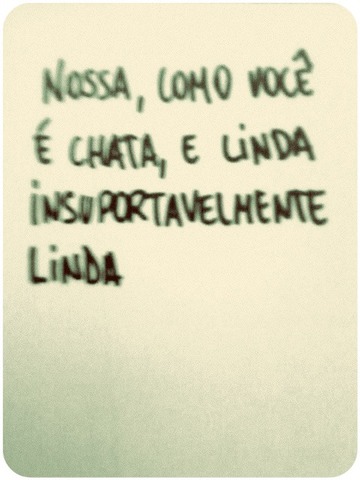 NOSSA, COMO VOCÊ
É CHATA, E LINDA
INSUPORTAVELMENTE
LINDA